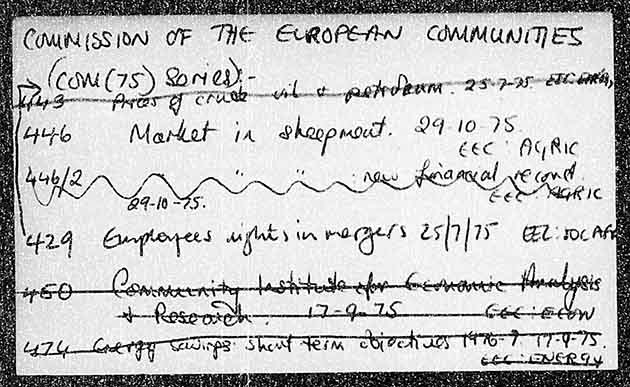 COMMISSION OF THE EUROPEAN COMMUNITIES
(COM(75) Series):-
443 Prices of crude oil & petroleum. 25-7-75. EEC:
446 Market in sheepmeat. 29-10-75.
EEC: AGRIC
446/2 " " " : new financial record.
29-10-75. EEC: AGRIC
429 Employees rights in mergers 25/7/75 EEC: SOC AFF
460 Community Institute for Economic Analysis
& Research. 17-9-75 EEC: ECON
474 Energy savings short term objectives 1976-7. 17-9-75.
EEC: ENERGY